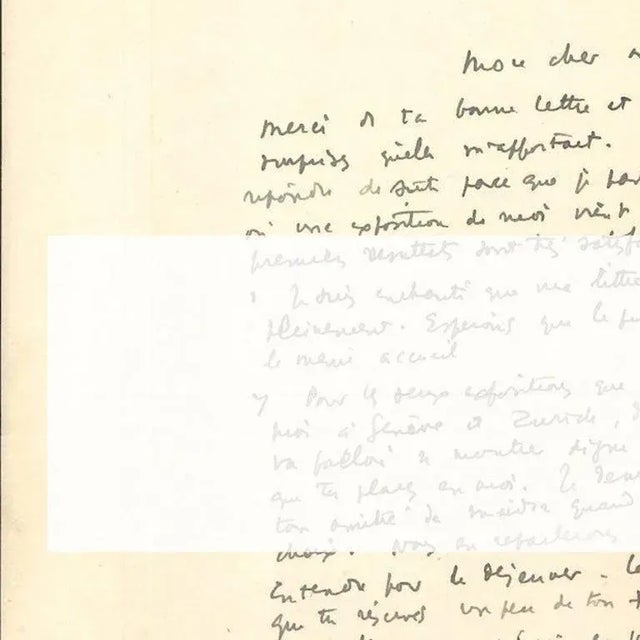 Mon cher
Merci de ta bonne lettre et
surprises qu'elle m'apportait.
répondre de suite parce que je
où une exposition de moi vient
premiers résultats sont très
1 Je suis enchanté que ma lettre
pleinement. Espérons que le
le même accueil
2 Pour les deux expositions que
moi à Genève et Zurich,
va falloir se montrer digne
que tu places en moi. Je
ton amitié de quand
choix. Nous en reparlerons
Entendu pour le déjeuner.
que tu réserves un peu de ton